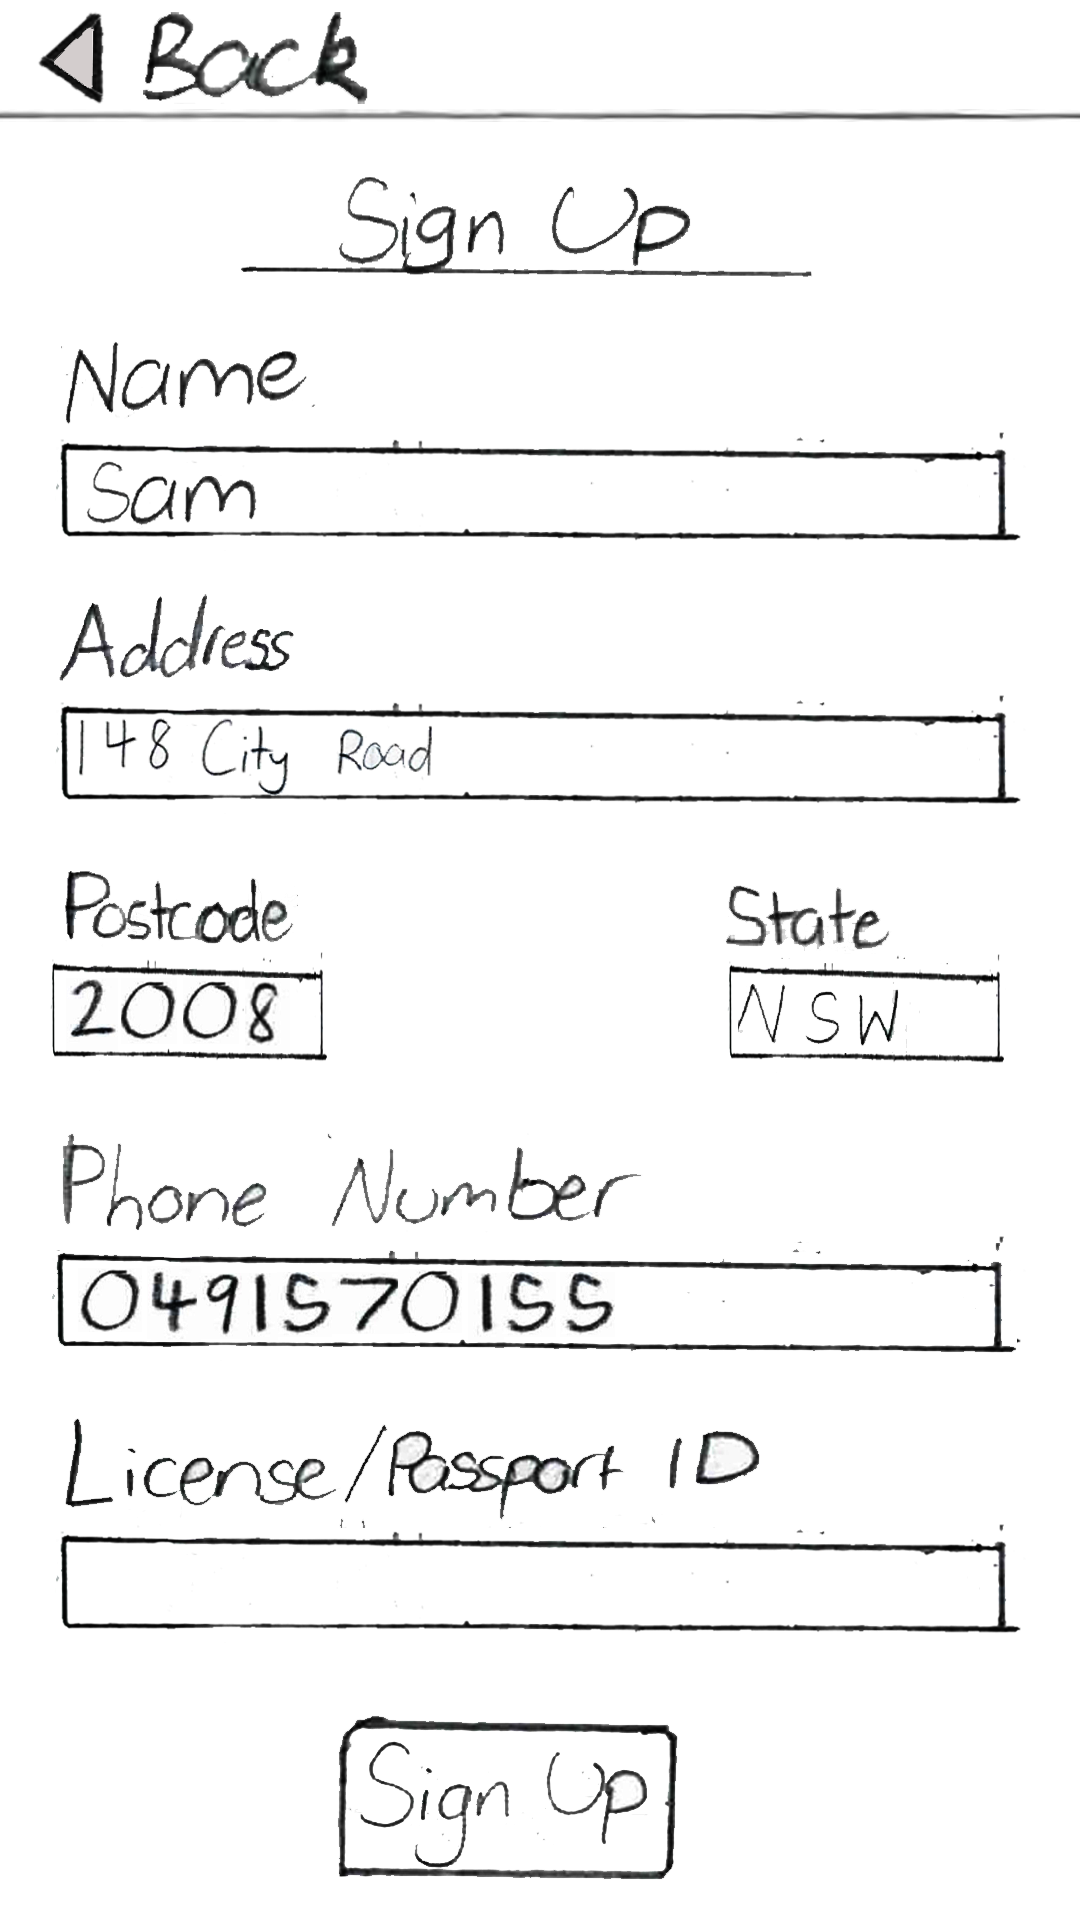 Back
Sign Up
Name
Sam
Address
148 City Road
Postcode State
2008 NSW
Phone Number
0491570155
License/Passport ID
Sign Up